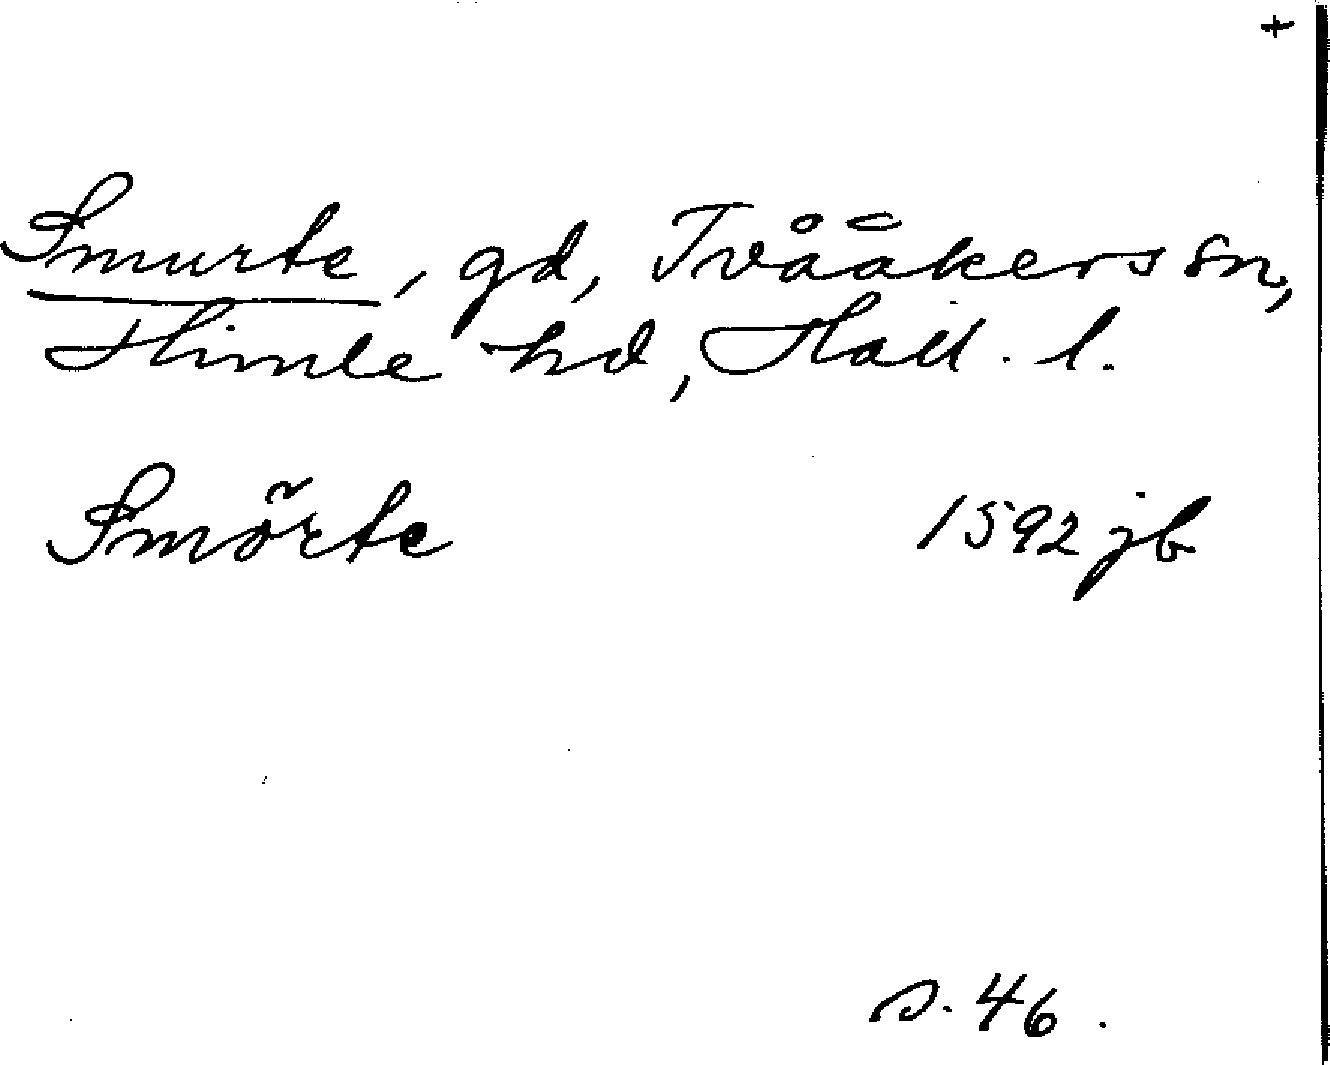 +
Smurte, gd, Tvååkers sn,
Himle hd, Hall. l.
Smörte 1592 jb
s. 46.